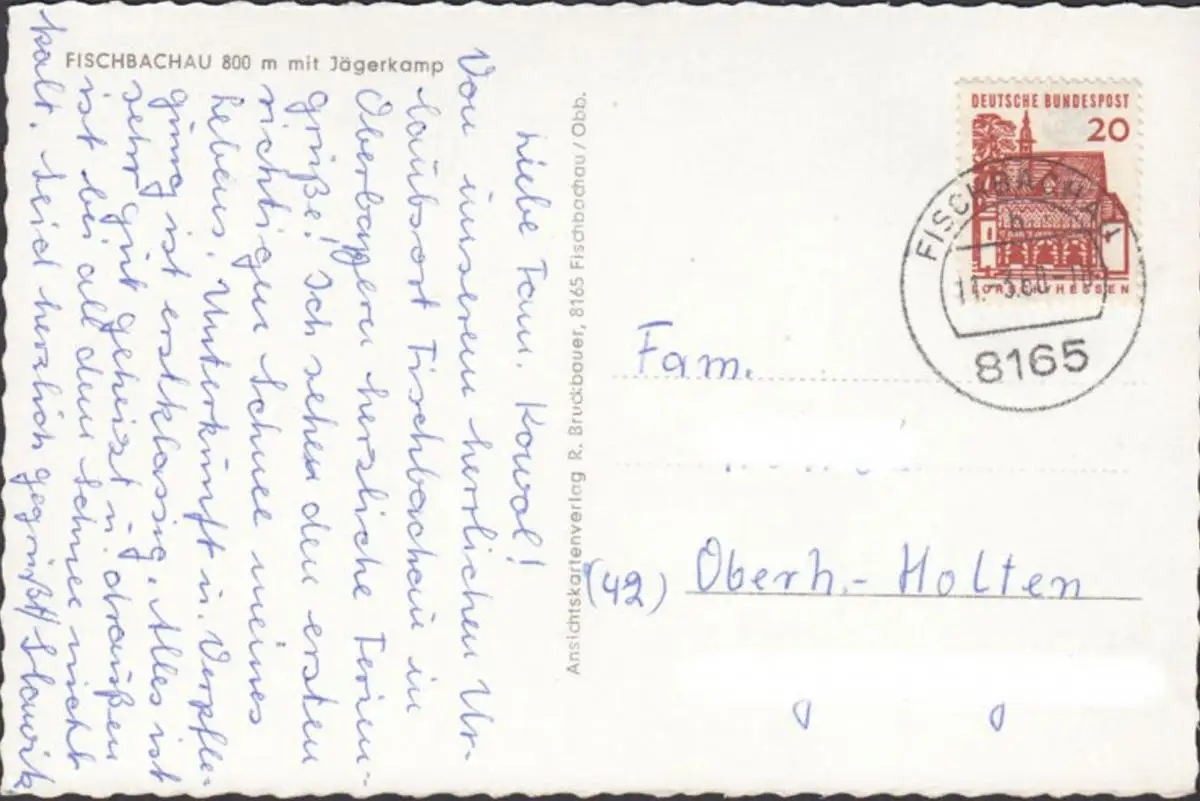 FISCHBACHAU 800 m mit Jägerkamp
Liebe Fam. Kowol!
Von unserem herrlichen Ur-
laubsort Fischbachau in
Oberbayern herzliche Ferien-
grüße! Ich sehe den ersten
richtigen Schnee meines
Lebens. Unterkunft u. Verpfle-
gung ist erstklassig. Alles ist
sehr gut geheizt u. draußen
ist bei all dem Schnee nicht
kalt. Seid herzlich gegrüßt!
Ansichtskartenverlag R. Bruckbauer, 8165 Fischbachau/Obb.
DEUTSCHE BUNDESPOST
20
LORSCH/HESSEN
FISCHBACHAU
b
8165
Fam.
(42) Oberh.-Holten